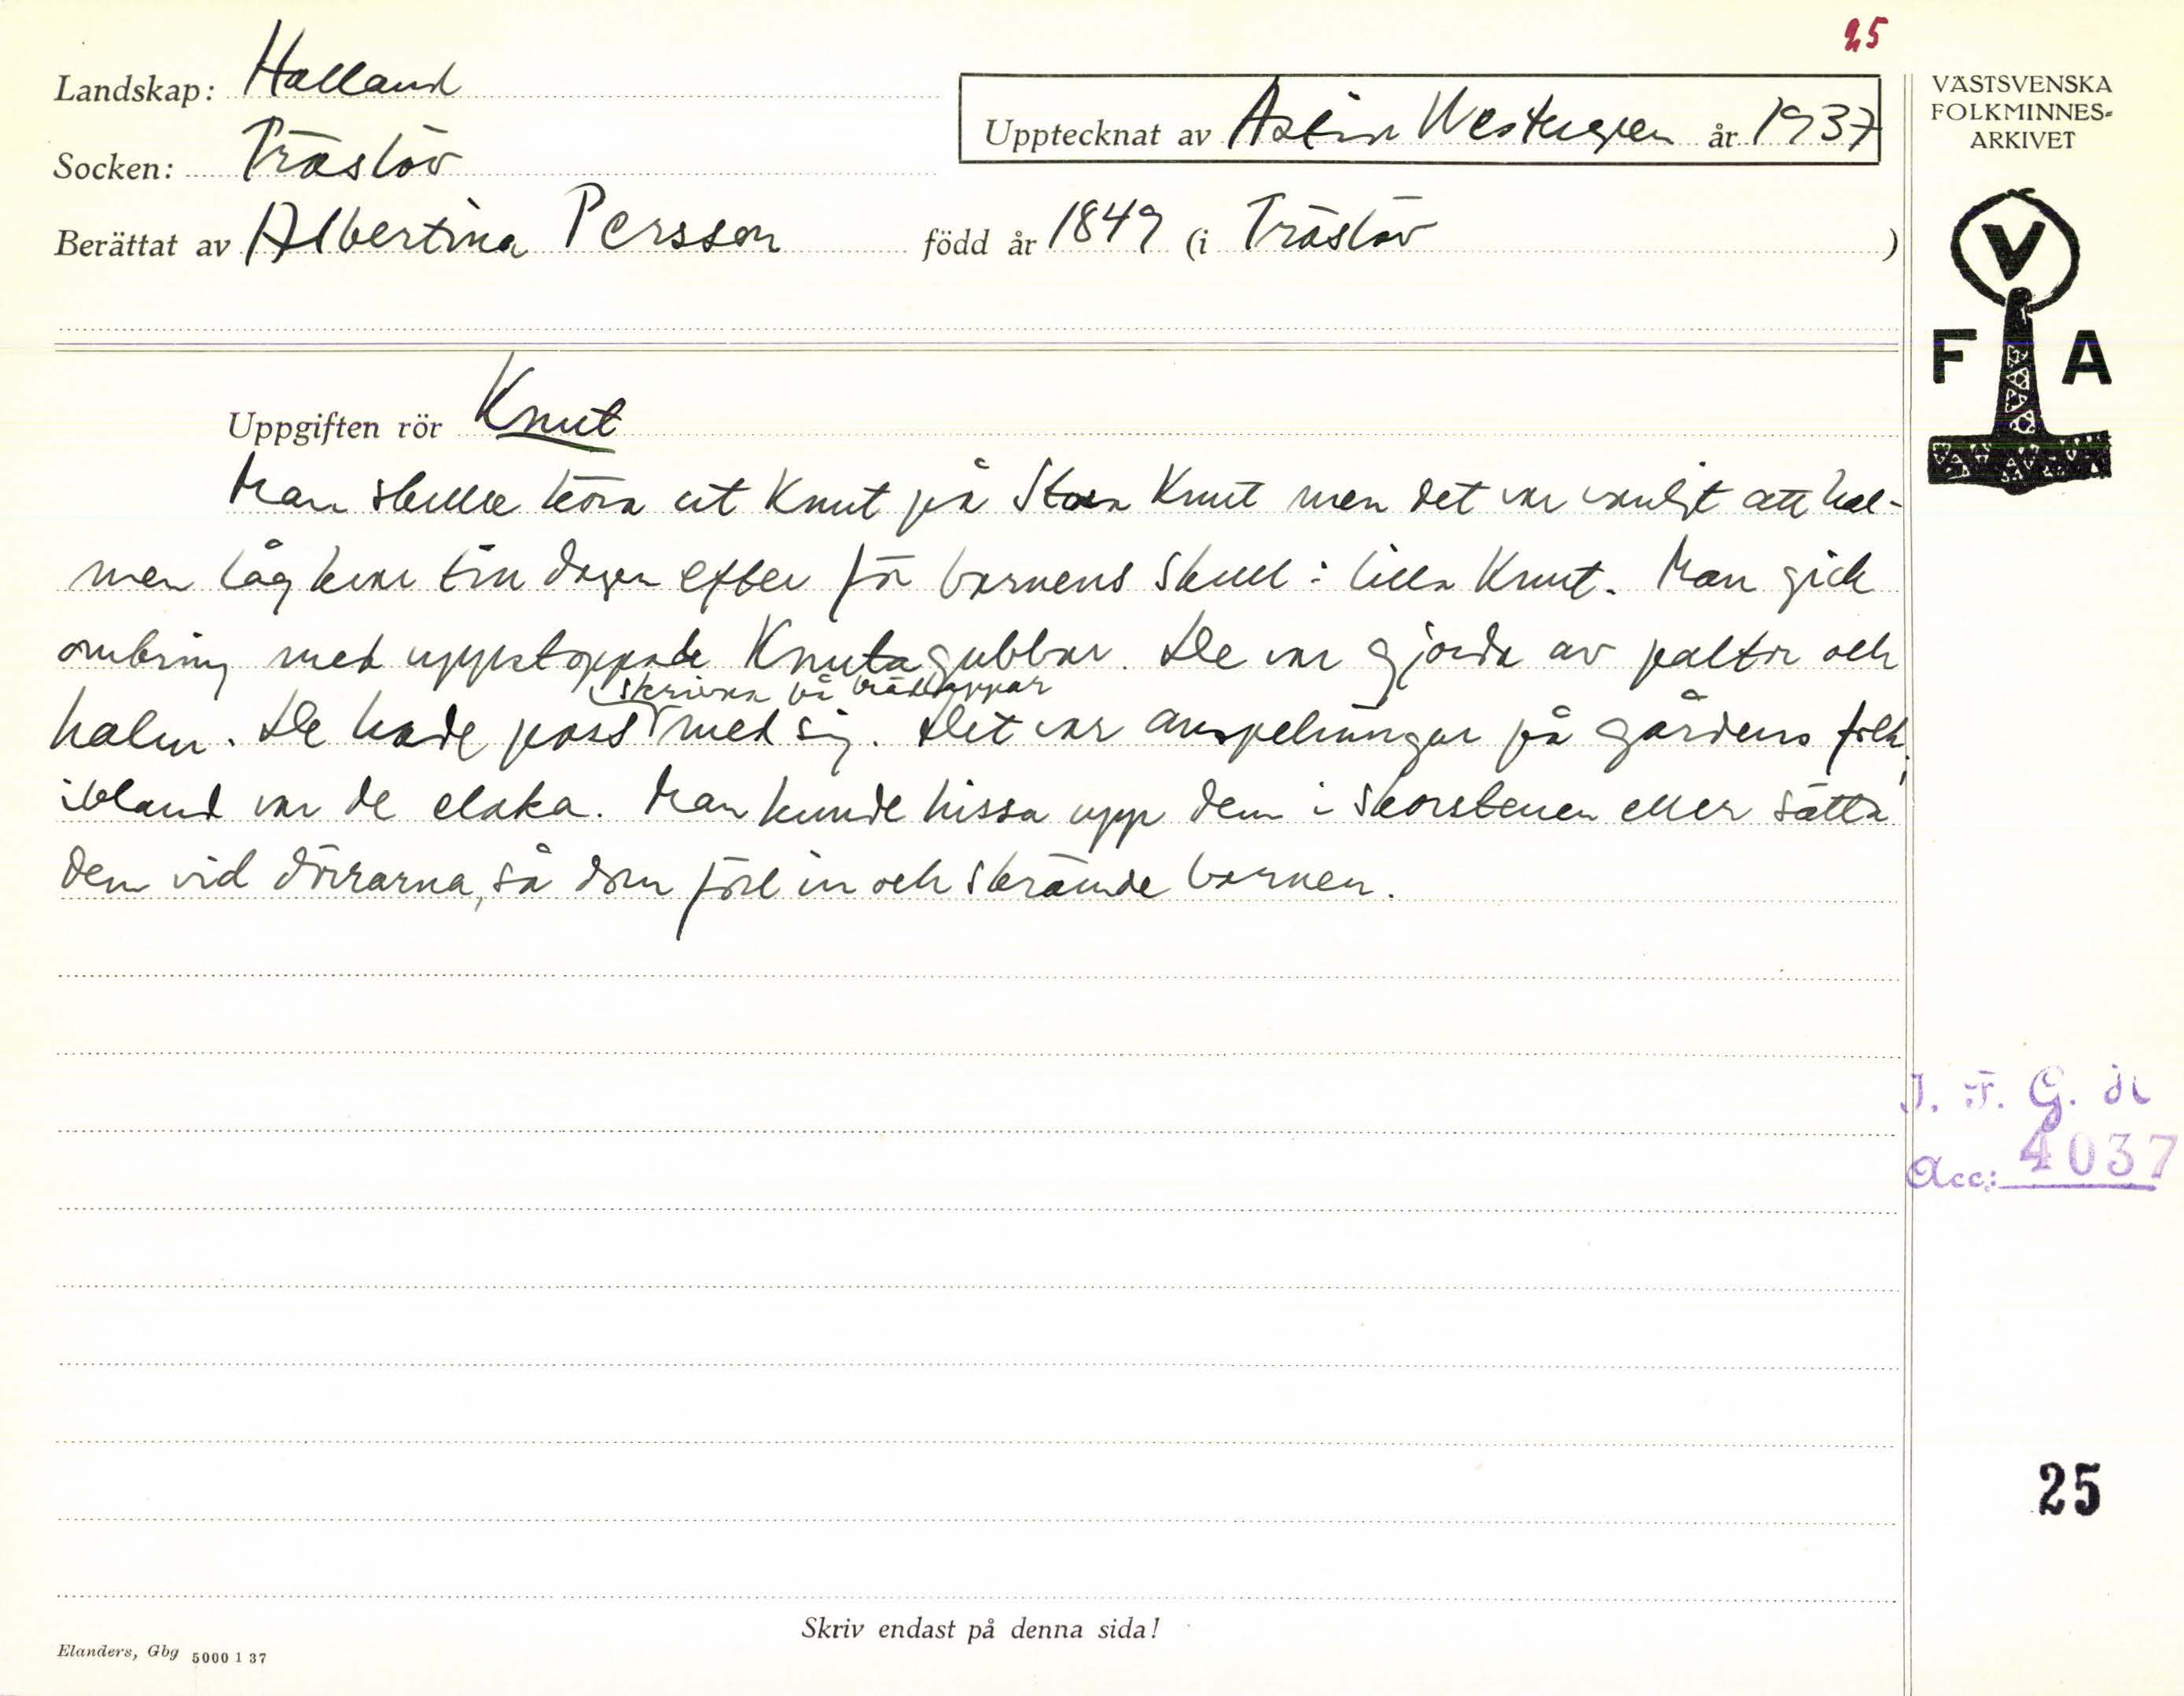 25
Landskap: Halland
Upptecknat av Astrin Westergren år 1937
Socken: Träslöv
Berättat av Albertina Persson född år 1849 (i Träslöv )
VÄSTSVENSKA
FOLKMINNES-
ARKIVET
V
F A
Uppgiften rör Knut
Man skulle köra ut Knut på Stora Knut men det var vanligt att hal-
men låg kvar till dagen efter för barnens skull: lilla Knut. Man gick
omkring med uppstoppade Knutagubbar. De var gjorda av paltor och
skrivna på trälappar
halm. De hade pass med sig. Det var anspelningar på gårdens folk,
ibland var de elaka. Man kunde hissa upp dem i skorstenen eller sätta
dem vid dörrarna, så dom föll in och skrämde barnen.
J. F. G. H
Acc: 4037
25
Skriv endast på denna sida!
Elanders, Gbg 5000 1 37